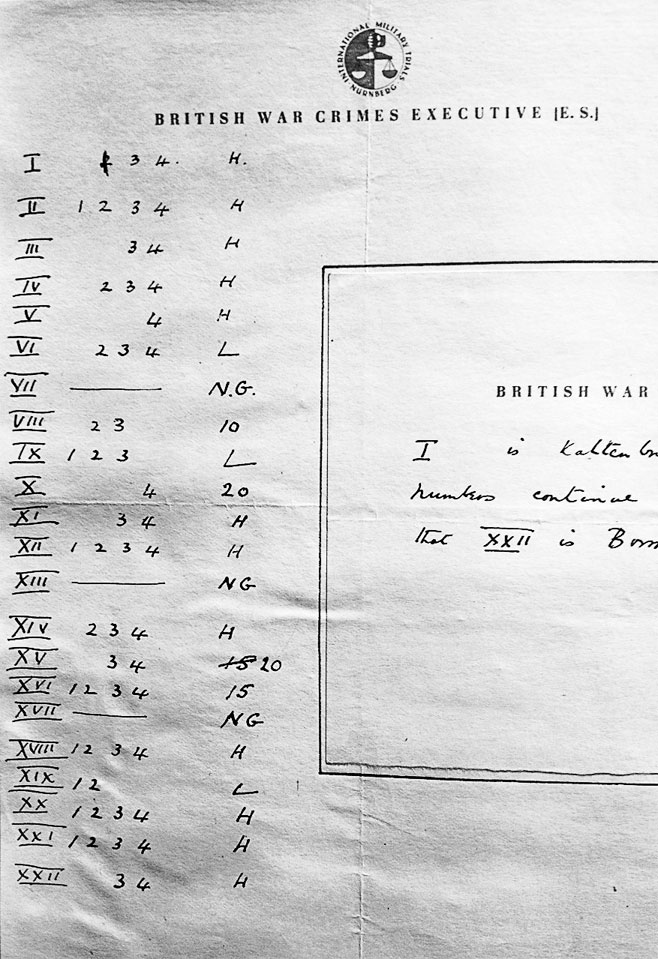 INTERNATIONAL MILITARY TRIALS NURNBERG
BRITISH WAR CRIMES EXECUTIVE [E. S.]
I 3 4. H.
II 1 2 3 4 H
III 3 4 H
IV 2 3 4 H
V 4 H
VI 2 3 4 L
VII — N.G.
VIII 2 3 10
IX 1 2 3 L
X 4 20
XI 3 4 H
XII 1 2 3 4 H
XIII — NG
XIV 2 3 4 H
XV 3 4 15 20
XVI 1 2 3 4 15
XVII — NG
XVIII 1 2 3 4 H
XIX 1 2 L
XX 1 2 3 4 H
XXI 1 2 3 4 H
XXII 3 4 H
BRITISH WAR
I is Kaltenbr
numbers continue
that XXII is Borm